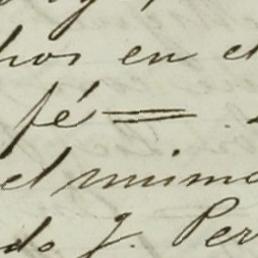 hos en el
fé =
el mismo
do J. Per